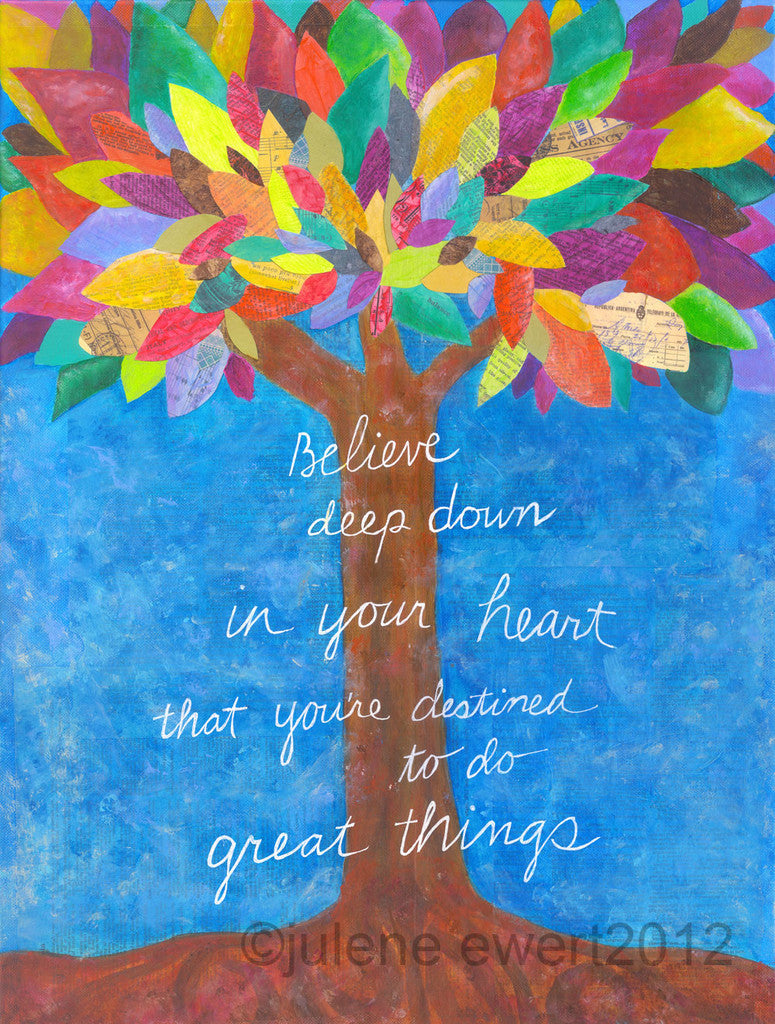 AGENCY
Believe
deep down
in your heart
that you're destined
to do
great things
©julene ewert2012